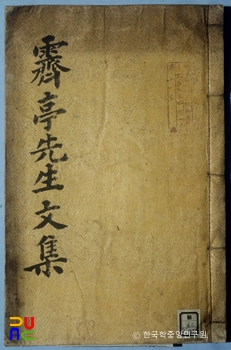 霽亭先生文集
© 한국학중앙연구원